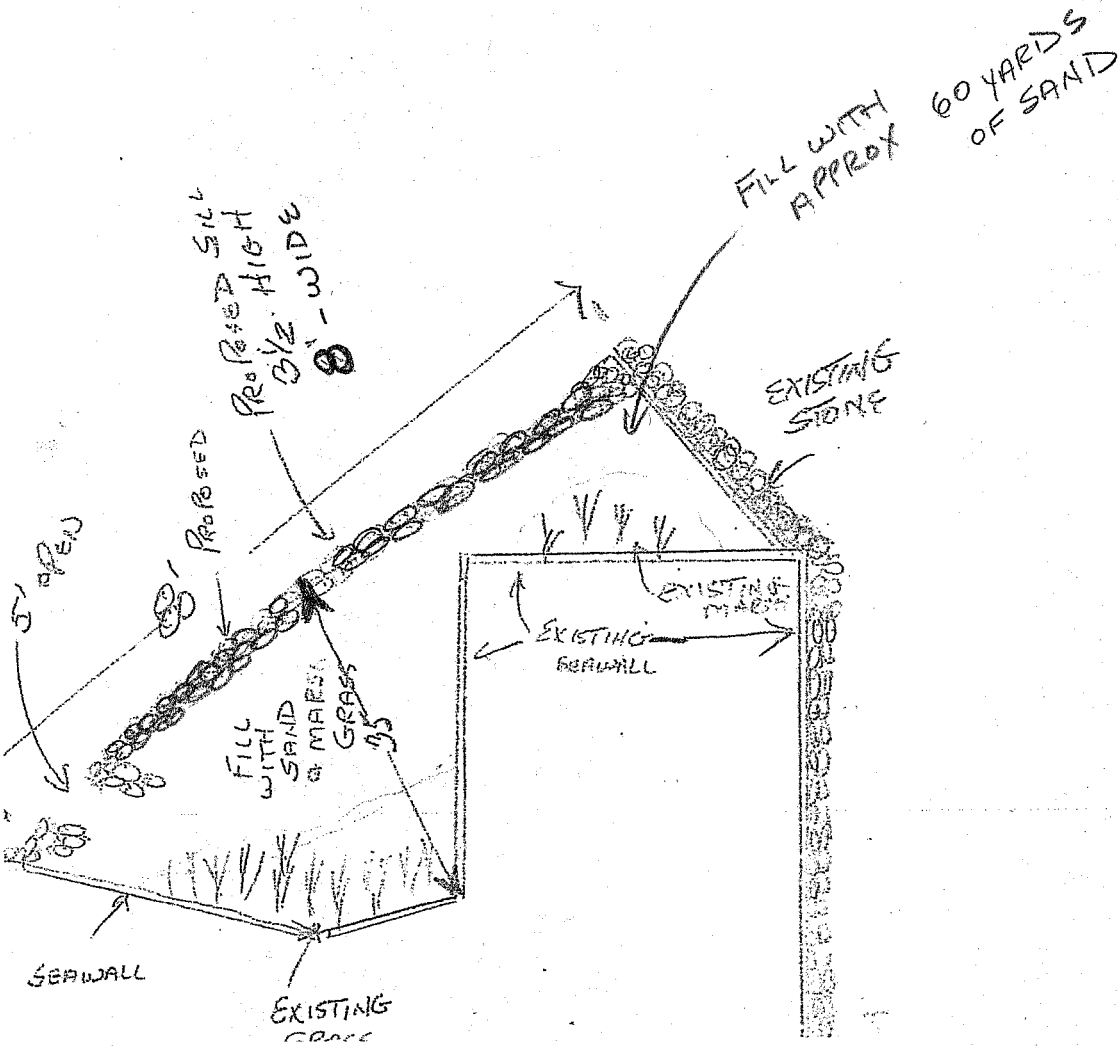 FILL WITH
APPROX 60 YARDS
OF SAND
PROPOSED SILL
3 1/2' HIGH
8' - WIDE
EXISTING
STONE
PROPOSED
5' OPEN
EXISTING
MARSH
EXISTING
SEAWALL
FILL
WITH
SAND
& MARSH
GRASS
35
SEAWALL
EXISTING